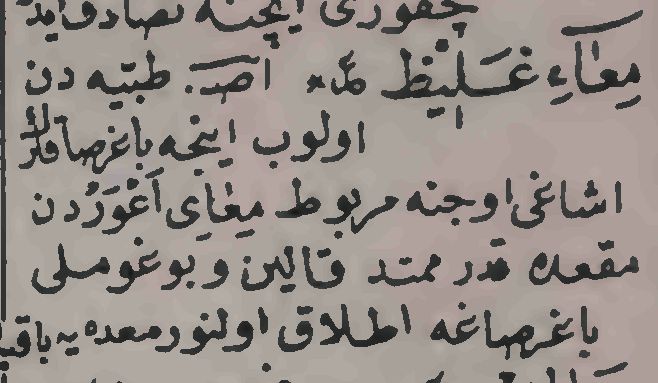 چقوری ایچنه تصادف ایدر
معاء غلیظ مذ اصـ. طبیه دن
اولوب اینجه باغرصاقلرڭ
اشاغی اوجنه مربوط معای اعوردن
مقعده قدر ممتد قالین و بوغوملی
باغرصاغه اطلاق اولنور معده یه باقیـ